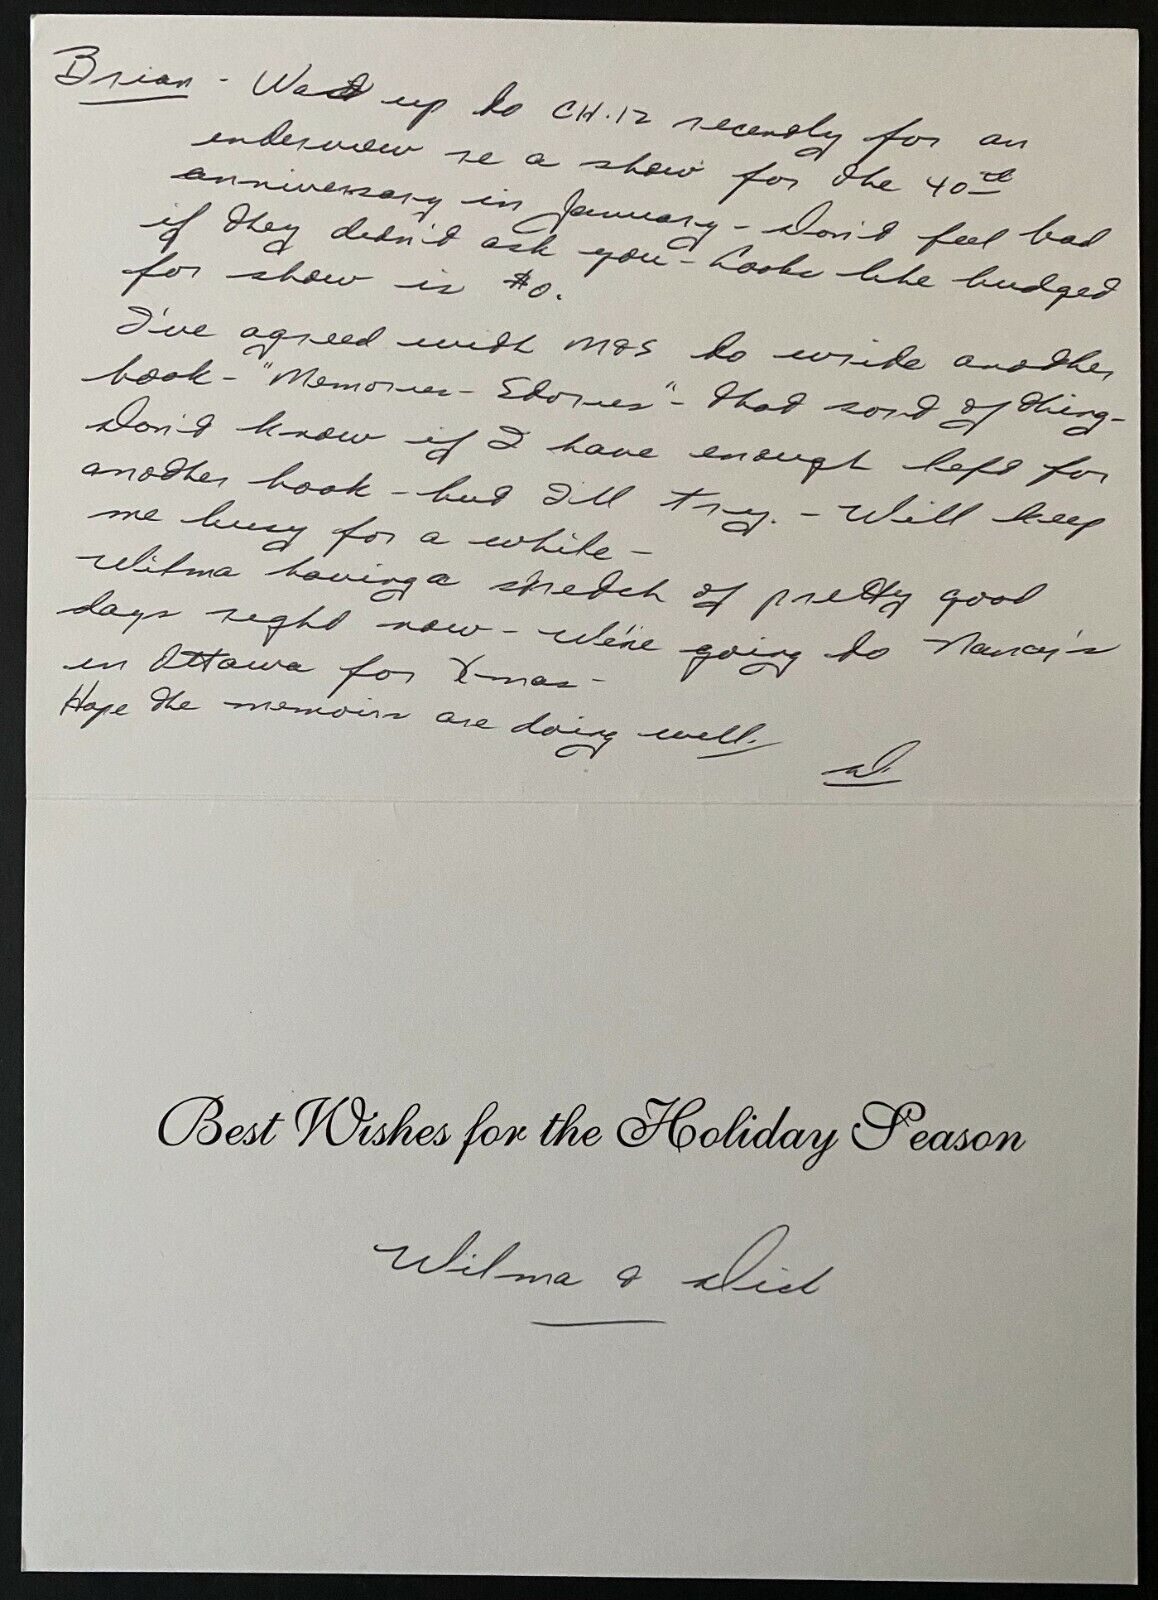 Brian - Was up to CH.12 recently for an
interview re a show for the 40th
anniversary in January - Don't feel bad
if they didn't ask you - Looks like budget
for show is $0.
I've agreed with M&S to write another
book - "Memories - Stories" - that sort of thing -
Don't know if I have enough left for
another book - but I'll try. - Will keep
me busy for a while -
Wilma having a stretch of pretty good
days right now - We're going to Nancy's
in Ottawa for X-mas -
Hope the memoirs are doing well.
D.
Best Wishes for the Holiday Season
Wilma & Dick